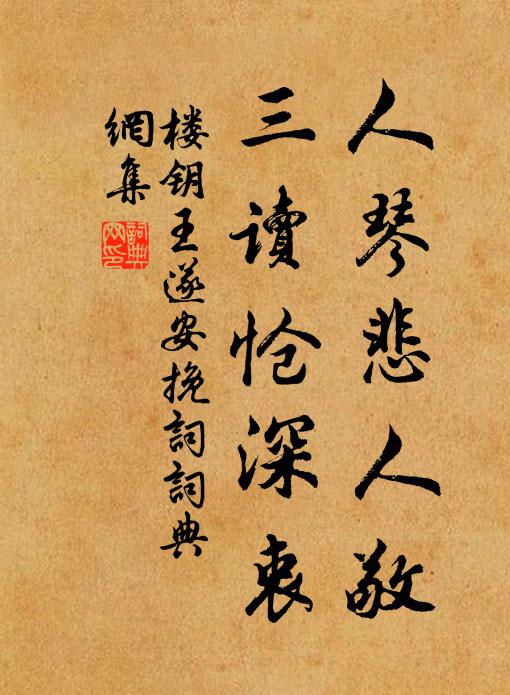 人琴悲人敬
三读怆深衷
楼钥王遂安挽词词典
網集
詞典網印